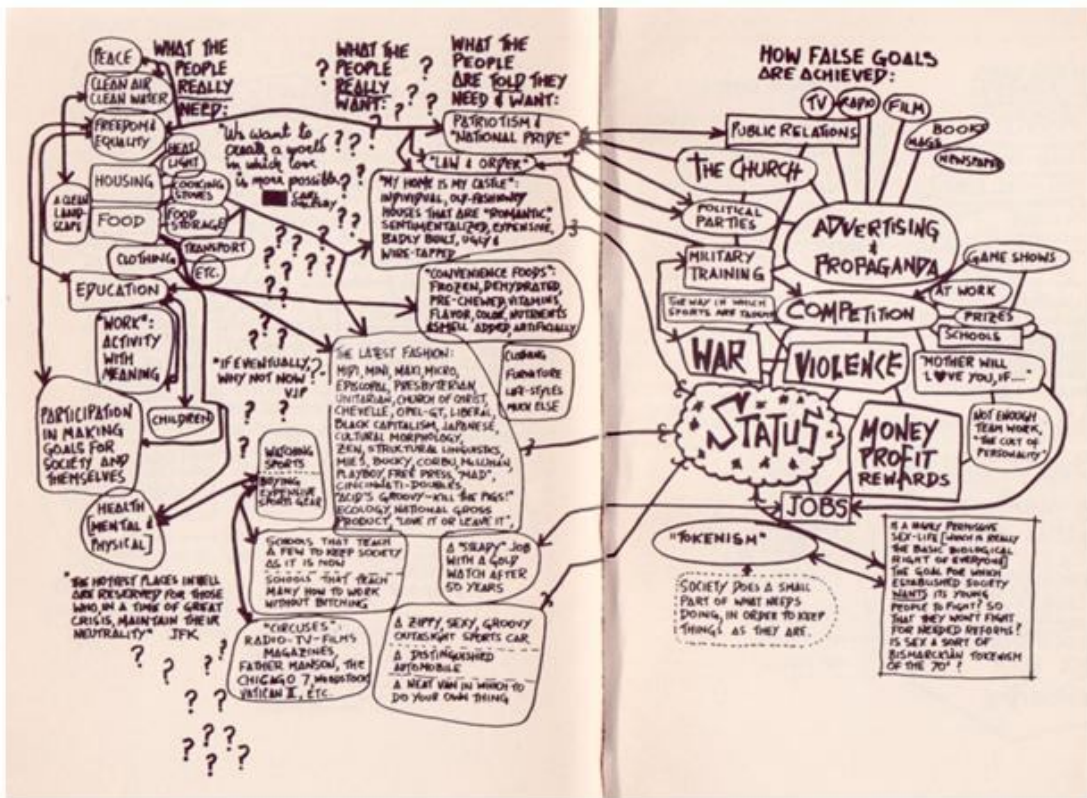 WHAT THE
PEOPLE
REALLY
NEED:
PEACE
CLEAN AIR
CLEAN WATER
FREEDOM &
EQUALITY
HEAT
LIGHT
HOUSING
COOKING
STOVES
A CLEAN
LAND-
SCAPE
FOOD
FOOD
STORAGE
TRANSPORT
CLOTHING
ETC.
EDUCATION
"WORK":
ACTIVITY
WITH
MEANING
PARTICIPATION
IN MAKING
GOALS FOR
SOCIETY AND
THEMSELVES
CHILDREN
HEALTH
[MENTAL &
PHYSICAL]
"THE HOTTEST PLACES IN HELL
ARE RESERVED FOR THOSE
WHO, IN A TIME OF GREAT
CRISIS, MAINTAIN THEIR
NEUTRALITY" JFK
WHAT THE
PEOPLE
REALLY
WANT:
"We want to
create a world
in which love
is more possible
"IF EVENTUALLY,
WHY NOT NOW?"
VJP
WHAT THE
PEOPLE
ARE TOLD THEY
NEED & WANT:
PATRIOTISM &
"NATIONAL PRIDE"
"LAW & ORDER"
"MY HOME IS MY CASTLE":
INDIVIDUAL, OLD-FASHIONED
HOUSES THAT ARE "ROMANTIC"
SENTIMENTALIZED, EXPENSIVE,
BADLY BUILT, UGLY &
WIRE-TAPPED
"CONVENIENCE FOODS":
FROZEN, DEHYDRATED,
PRE-CHEWED, VITAMINS,
FLAVOR, COLOR, NUTRIENTS
& SMELL ADDED, ARTIFICIALLY
THE LATEST FASHION:
MIDI, MINI, MAXI, MICRO,
EPISCOPAL, PRESBYTERIAN,
UNITARIAN, CHURCH OF CHRIST,
CHEVELLE, OPEL-GT, LIBERAL,
BLACK CAPITALISM, JAPANESE,
CULTURAL MORPHOLOGY,
ZEN, STRUCTURAL LINGUISTICS,
MIES, BUCKY, CORBU, McLUHAN,
PLAYBOY, FREE PRESS, "MAD",
CINCINNATI-DOUBLES,
"ACID'S GROOVY-KILL THE PIGS!"
ECOLOGY, NATIONAL GROSS
PRODUCT, "LOVE IT OR LEAVE IT",
CLOTHING
FURNITURE
LIFE-STYLES
MUCH ELSE
WATCHING
SPORTS
BUYING
EXPENSIVE
SPORTS GEAR
SCHOOLS THAT TEACH
A FEW TO KEEP SOCIETY
AS IT IS NOW
SCHOOLS THAT TEACH
MANY HOW TO WORK
WITHOUT BITCHING
"CIRCUSES":
RADIO-TV-FILMS
MAGAZINES,
FATHER MANSON, THE
CHICAGO 7, WOODSTOCK
VATICAN II, ETC.
A "STEADY" JOB
WITH A GOLD
WATCH AFTER
50 YEARS
A ZIPPY, SEXY, GROOVY
OUTASIGHT SPORTS CAR
A DISTINGUISHED
AUTOMOBILE
A NEAT VAN IN WHICH TO
DO YOUR OWN THING
HOW FALSE GOALS
ARE ACHIEVED:
TV
RADIO
FILM
BOOKS
MAGS
NEWSPAPER
PUBLIC RELATIONS
THE CHURCH
POLITICAL
PARTIES
ADVERTISING
&
PROPAGANDA
MILITARY
TRAINING
GAME SHOWS
THE WAY IN WHICH
SPORTS ARE TAUGHT
COMPETITION
AT WORK
PRIZES
SCHOOLS
WAR
VIOLENCE
"MOTHER WILL
LOVE YOU, IF...."
STATUS
MONEY
PROFIT
REWARDS
NOT ENOUGH
TEAM WORK,
"THE CULT OF
PERSONALITY"
JOBS
"TOKENISM"
SOCIETY DOES A SMALL
PART OF WHAT NEEDS
DOING, IN ORDER TO KEEP
THINGS AS THEY ARE.
IS A HIGHLY PERMISSIVE
SEX-LIFE [WHICH IS REALLY
THE BASIC BIOLOGICAL
RIGHT OF EVERYONE]
THE GOAL FOR WHICH
ESTABLISHED SOCIETY
WANTS ITS YOUNG
PEOPLE TO FIGHT? SO
THAT THEY WON'T FIGHT
FOR NEEDED REFORMS?
IS SEX A SORT OF
BISMARCKIAN TOKENISM
OF THE 70'S?